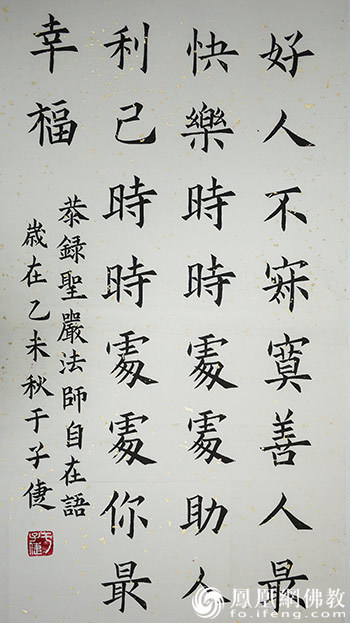 好人不寂寞善人最
快樂時時處處助人
利己時時處處你最
幸福
恭錄聖嚴法師自在語
歲在乙未秋于子倢
鳳凰網佛教
fo.ifeng.com